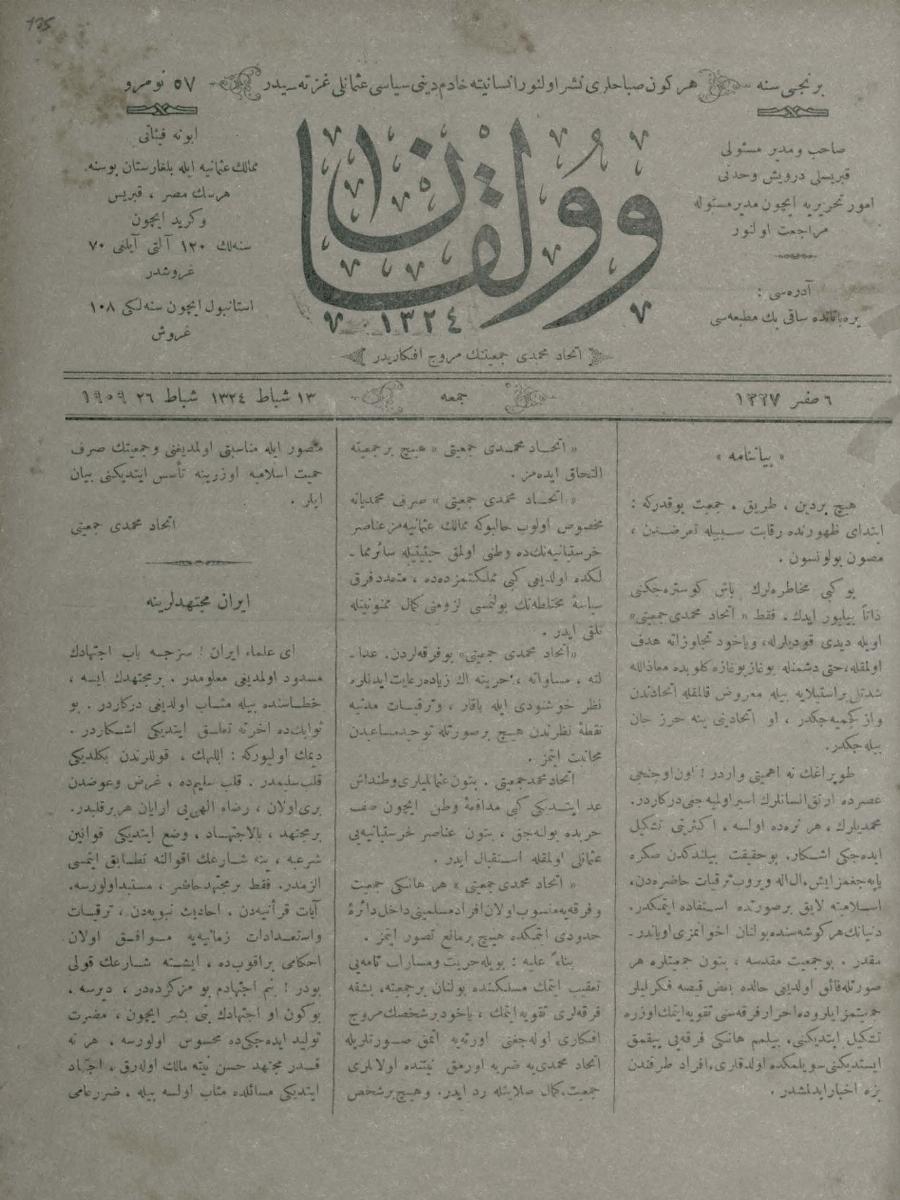 135
برنجی سنه
هر كون صباحلری نشر اولنور انسانیته خادم دینی سیاسی عثمانلی غزته‌سیدر
٥٧ نومرو
صاحب و مدیر مسئولی
قبریسلی درویش وحدتی
امور تحریریه ایچون مدیر مسئوله
مراجعت اولنور
آدره‌سی :
یره‌باتانده ساقی بك مطبعه‌سی
وولقان
١٣٢٤
اتحاد محمدی جمعیتنك مروج افكاریدر
ابونه فیئاتی
ممالك عثمانیه ایله بلغارستان بوسنه
هرسك مصر ، قبریس
وكرید ایچون
سنه‌لك ١٢٠ آلتی آیلغی ٧٠
غروشدر
استانبول ایچون سنه‌لكی ١٠٨
غروش
٦ صفر ١٣٢٧
جمعه
١٣ شباط ١٣٢٤ شباط ٢٦ ١٩٠٩
« بیاننامه »
هیچ بر دین ، طریق ، جمعیت یوقدركه :
ابتدای ظهورنده رقابت سببیله تعرضدن ،
مصون بولونسون .
بو كبی مخاطره‌لرك باش كوستره‌جكنی
ذاتاً بیلیور ایدك . فقط « اتحاد محمدی جمعیتی»
اویله دیدی قودیلرله، ویاخود تجاوزاته هدف
اولمقله، حتی دشمنله بوغاز بوغازه كلوبده معاذالله
شدتلی بر استیلایه بیله معروض قالمقله اتحادندن
واز كچمیه‌جكدر ، او اتحادینی ینه حرز جان
بیله‌جكدر.
طوپراغك نه اهمیتی واردر ! اون اوجنجی
عصرده آرتق انسانلرك اسیر اولمیه‌جغی دركاردر.
محمدیلرك ، هر نره‌ده اولسه ، اكثرتی تشكیل
ایده‌جكی اشكار. بو حقیقت بیلندكدن صكره
یاپه‌جغمز ایش، ال اله ویروب ترقیات حاضره‌دن،
اسلامیته لایق بر صورتده استفاده ایتمكدر.
دنیانك هر كوشه‌سنده بولنان اخوانمزی اویاندر-
مقدر . بو جمعیت مقدسه ، بتون جمعیتلره هر
صورتله فائق اولدیغی حالده بعض قیصه فكرلیلر
جمعیتمز ایلروده احرار فرقه‌سی تقویه ایتمك اوزره
تشكیل ایتدیكنی، بیلمم هانكی فرقه‌یی ییقمق
ایستدیكنی سویلمكده اولدقلری، افراد طرفندن
بزه اخبار ایدلمشدر .
« اتحاد محمدی جمعیتی » هیچ بر جمعیته
التحاق ایده‌مز .
« اتحاد محمدی جمعیتی » صرف محمدیلنه
مخصوص اولوب حالبوكه ممالك عثمانیه‌مز عناصر
خرستیانیه‌نكده وطنی اولمق حیثیتیله سائر مما-
لكده اولدیغی كبی مملكتمزده‌ده ، متعدد فرق
سیاسهٔ مختلطه‌نك بولنمسی لزومنی كمال ممنونیتله
تلقی ایدر .
«اتحاد محمدی جمعیتی» بو فرقه‌لردن، عدا-
لته ، مساواته ، حریته اك زیاده رعایت ایدنلره
نظر خوشنودی ایله باقار ، و ترقیات مدنیه
نقطهٔ نظرندن هیچ بر صورتله توحید مساعیدن
مجانبت ایتمز .
اتحاد محمد جمعیتی . بتون عثمانلیلری وطنداش
عد ایتدیكی كبی مدافعهٔ وطن ایچون صف
حربده بوله‌جق ، بتون عناصر خرستیانیه‌یی
عثمانلی اولمقله استقبال ایدر .
« اتحاد محمدی جمعیتی » هر هانكی جمعیت
و فرقه‌یه منسوب اولان افراد مسلمینی داخل دائرهٔ
حدودی ایتمكده هیچ بر مانع تصور ایتمز .
بناءً علیه : بویله حریت و مساوات تامه‌یی
تعقیب ایتمك مسلكنده بولنان بر جمعیته، بشقه
فرقه‌لری تقویه ایتمك ، یاخود بر شخصك مروج
افكاری اوله‌جغنی اورته‌یه آتمق صورتلریله
اتحاد محمدی‌یه ضربه اورمق نیتنده اولانلری
جمعیت، كمال صلابتله رد ایدر. و هیچ بر شخص
منصور ایله مناسبتی اولمدیغنی و جمعیتك صرف
حمیت اسلامیه اوزرینه تأسس ایتدیكنی بیان
ایلر .
اتحاد محمدی جمعیتی
ایران مجتهدلرینه
ای علماء ایران ! سزجه باب اجتهادك
مسدود اولمدیغی معلومدر . بر مجتهدك ایسه ،
خطاسنده بیله مثاب اولدیغی دركاردر . بو
ثوابك‌ده آخرته تعلق ایتدیكی اشكاردر .
دیمك اولیوركه : اللهك ، قوللرندن بكلدیكی
قلب سلیمدر . قلب سلیم‌ده ، غرض و عوضدن
بری اولان ، رضاء الهی‌یی آرایان هر بر قلبدر.
بر مجتهد ، بالاجتهاد ، وضع ایتدیكی قوانین
شرعیه ، ینه شارعك اقوالنه تطابق ایتمسی
الزمدر. فقط بر مجتهد حاضر ، مستبد اولورسه.
آیات قرآنیه‌دن . احادیث نبویه‌دن ، ترقیات
و استعدادات زمانیه‌یه موافق اولان
احكامی براقوب‌ده ، ایشته شارعك قولی
بودر ! بنم اجتهادم بو مركزده‌در ، دیرسه .
بوكون او اجتهادك بنی بشر ایچون ، مضرت
تولید ایده‌جكی‌ده محسوس اولورسه . هر نه
قدر مجتهد حسن نیته مالك اوله‌رق . اجتهاد
ایتدیكی مسائلده مثاب اولسه بیله . ضرر عامی